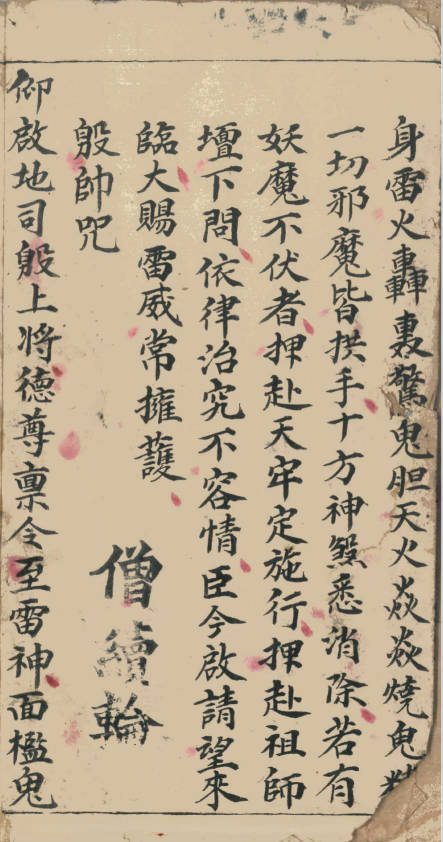 身雷火轟轟驚鬼胆天火焱焱燒鬼精
一切邪魔皆拱手十方神煞悉消除若有
妖魔不伏者押赴天牢定施行押赴祖師
壇下問依律治究不容情臣今啟請望來
臨大賜雷威常擁護
殷帥咒
僧續輪
仰啟地司殷上将德尊禀令至雷神面檻鬼